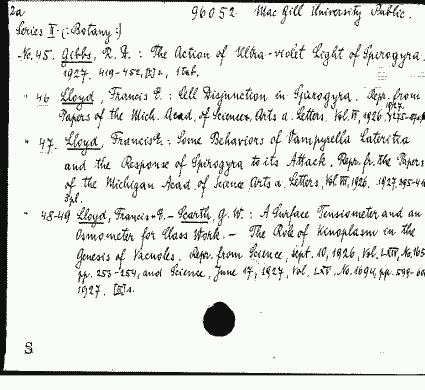 2a 96052 Mac Gill University Public.
Series II (: Botany :)
No. 45. Gibbs, R. D. : The Action of Ultra-violet Light of Spirogyra.
1927. 419-452, [2] 2, 1 tab.
" 46 Lloyd, Francis E. : Cell Disjunction in Spirogyra. Repr. from
Papers of the Mich. Acad. of Science, Arts a. Letters. Vol. VI, 1926. 1927.
" 47. Lloyd, Francis E. : Some Behaviors of Vampyrella Lateritia
and the Response of Spirogyra to its Attack. Repr. fr. the Papers
of the Michigan Acad. of Science Arts a. Letters, Vol. VII, 1926. 1927. 395-4
3 pl.
" 48-49 Lloyd, Francis E. – Scarth, G. W. : A Surface Tensiometer and an
Osmometer for Class Work. – The Role of Kenoplasm in the
Genesis of Vacuoles. Repr. from Science, Sept. 10, 1926, Vol. LXIV, No. 165
pp. 253-254, and Science, June 17, 1927, Vol. LXV. No. 1694, pp. 599-60
1927. [2] s.
S